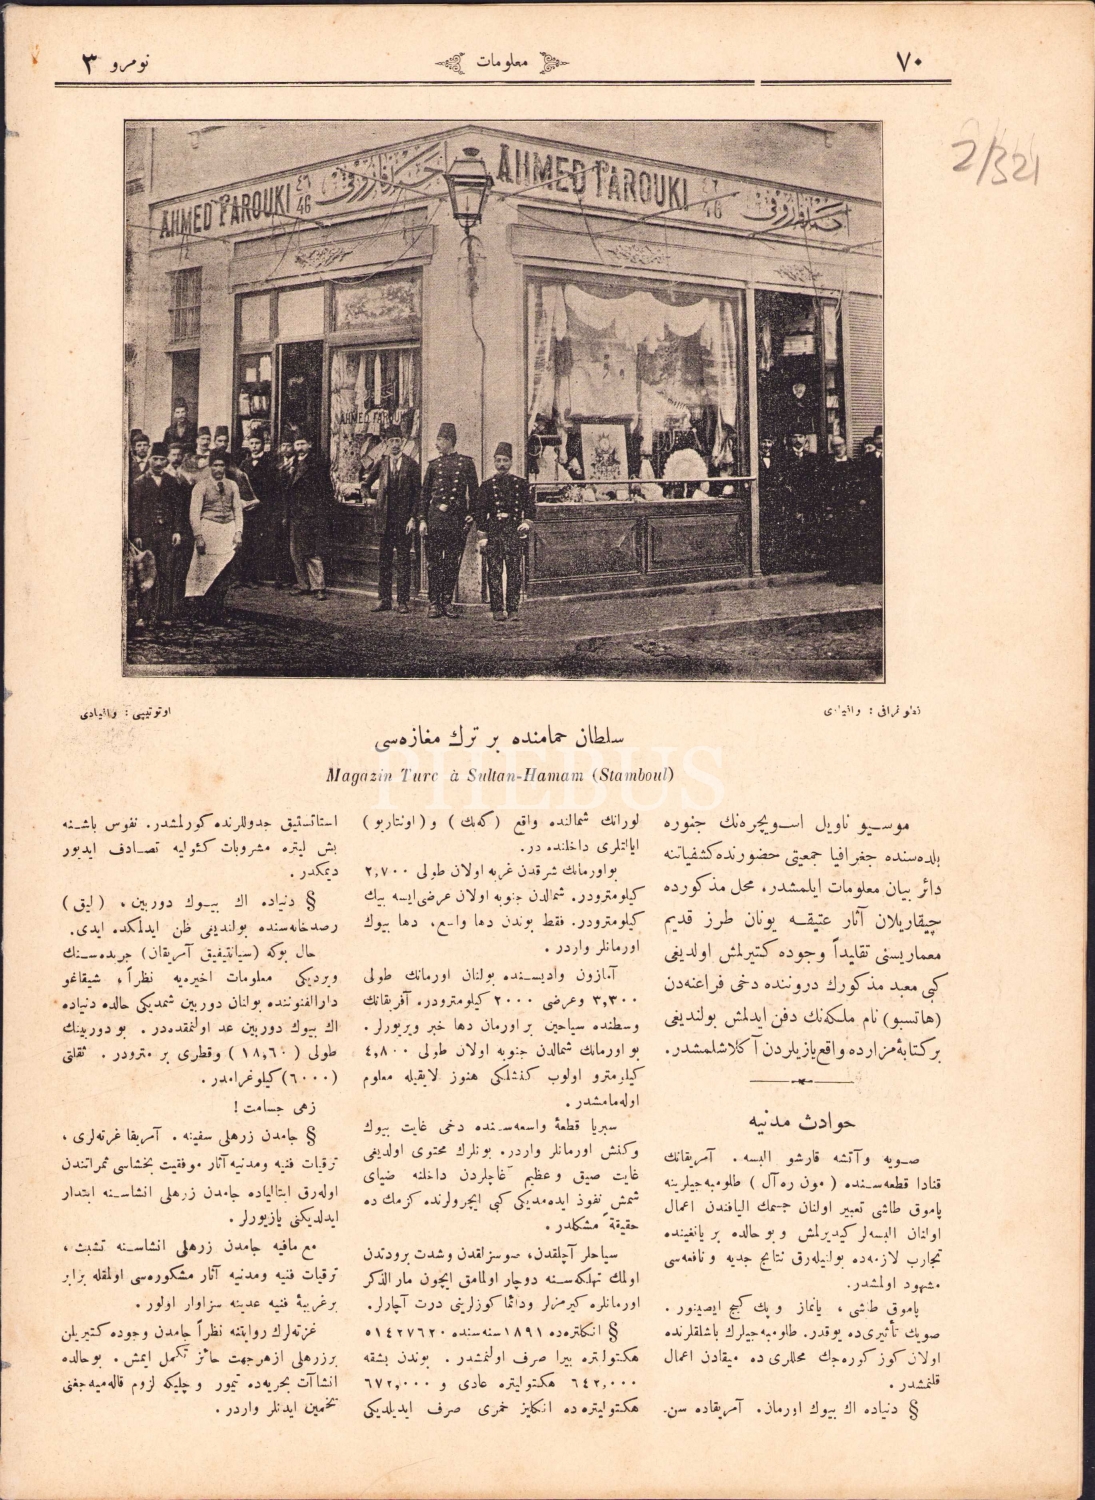 ٧٠
معلومات
نومرو ٣
2/321
AHMED FAROUKI ٤٦ 46 احمد فاروقی
AHMED FAROUKI ٤٦ 46 احمد فاروقی
AHMED FAROUKI
فطوغرافی : وافیادی
اوتوتیپی : وافیادی
سلطان حمامنده بر ترك مغازه‌سی
Magazin Turc à Sultan-Hamam (Stamboul)
PHEBUS
موسیو ناویل اسویچره‌نك جنوره
بلده‌سنده جغرافیا جمعیتی حضورنده كشفیاتنه
دائر بیان معلومات ایلمشدر. محل مذكورده
چیقاریلان آثار عتیقه یونان طرز قدیم
معماریسنی تقلیداً وجوده كتیرلمش اولدیغی
كبی معبد مذكورك دروننده دخی فراعنه‌دن
(هاتسبو) نام ملكه‌نك دفن ایدلمش بولندیغی
بر كتابهٔ مزارده واقع یازیلردن آكلاشلمشدر.
حوادث مدنیه
صویه وآتشه قارشو البسه. آمریقانك
قنادا قطعه‌سنده ( مون ره‌آل ) طلومبه‌جیلرینه
پاموق طاشی تعبیر اولنان جسمك الیافندن اعمال
اولنان البسه‌لر كیدیرلمش و بو حالده بر یانغینده
تجارب لازمه‌ده بولنیله‌رق نتایج جدیه و نافعه‌سی
مشهود اولمشدر.
پاموق طاشی، یانماز و پك كیج ایصینور.
صویك تأثیری ده یوقدر. طلومبه‌جیلرك باشلقلرنده
اولان كوز كوره‌جك محللری ده میقادن اعمال
قلنمشدر.
§ دنیاده اك بیوك اورمان. آمریقاده سن-
لورانك شمالنده واقع (كه‌بك) و (اونتاریو)
ایالتلری داخلنده در.
بواورمانك شرقدن غربه اولان طولی ٢,٧٠٠
كیلومترودر. شمالدن جنوبه اولان عرضی ایسه بیك
كیلومترودر. فقط بوندن دها واسع، دها بیوك
اورمانلر واردر.
آمازون وادیسنده بولنان اورمانك طولی
٣,٣٠٠ وعرضی ٢٠٠٠ كیلومترودر. آفریقانك
وسطنده سیاحین بر اورمان دها خبر ویریورلر.
بو اورمانك شمالدن جنوبه اولان طولی ٤,٨٠٠
كیلومترو اولوب كنشلكی هنوز لایقیله معلوم
اوله‌مامشدر.
سبریا قطعهٔ واسعه‌سنده دخی غایت بیوك
وكنش اورمانلر واردر. بونلرك محتوی اولدیغی
غایت صیق وعظیم آغاجلردن داخلنه ضیای
شمش نفوذ ایده‌مدیكی كبی ایچرولرنده كزمك ده
حقیقةً مشكلدر.
سیاحلر آچلقدن، صوسزلقدن وشدت برودتدن
اولمك تهلكه‌سنه دوچار اولمامق ایچون مار الذكر
اورمانلره كیرمزلر ودائما كوزلرینی درت آچارلر.
§ انكلتره‌ده ١٨٩١ سنه‌سنده ٥١٤٢٧٦٢٠
هكتولتره بیرا صرف اولنمشدر. بوندن بشقه
٦٤٢,٠٠٠ هكتولیتره عادی و ٦٧٢,٠٠٠
هكتولیتره‌ده انكلیز خمری صرف ایدیلدیكی
استاتستیق جدوللرنده كورلمشدر. نفوس باشنه
بش لیتره مشروبات كئولیه تصادف ایدیور
دیمكدر.
§ دنیاده اك بیوك دوربین، (لیق)
رصدخانه‌سنده بولندیغی ظن ایدلمكده ایدی.
حال بوكه (سیانتیفیق آمریقان) جریده‌سنك
ویردیكی معلومات اخیره‌یه نظراً، شیقاغو
دارالفنوننده بولنان دوربین شمدیكی حالده دنیاده
اك بیوك دوربین عد اولنمقده‌در. بو دوربینك
طولی (١٨,٦٠) وقطری بر مترودر. ثقلتی
(٦٠٠٠) كیلوغرامدر.
زهی جسامت!
§ جامدن زرهلی سفینه. آمریقا غزته‌لری،
ترقیات فنیه ومدنیه آثار موفقیت بخشاسی ثمراتندن
اوله‌رق ایتالیاده جامدن زرهلی انشاسنه ابتدار
ایدلدیكنی یازیورلر.
مع مافیه جامدن زرهلی انشاسنه تشبث،
ترقیات فنیه ومدنیه آثار مشكوره‌سی اولمقله برابر
بر غریبهٔ فنیه عدینه سزاوار اولور.
غزته‌لرك روایتنه نظراً جامدن وجوده كتیریلن
بر زرهلی از هر جهت حائز تكمل ایمش. بو حالده
انشاآت بحریه‌ده تیمور و چلیكه لزوم قاله‌میه‌جغنی
تخمین ایدنلر واردر.